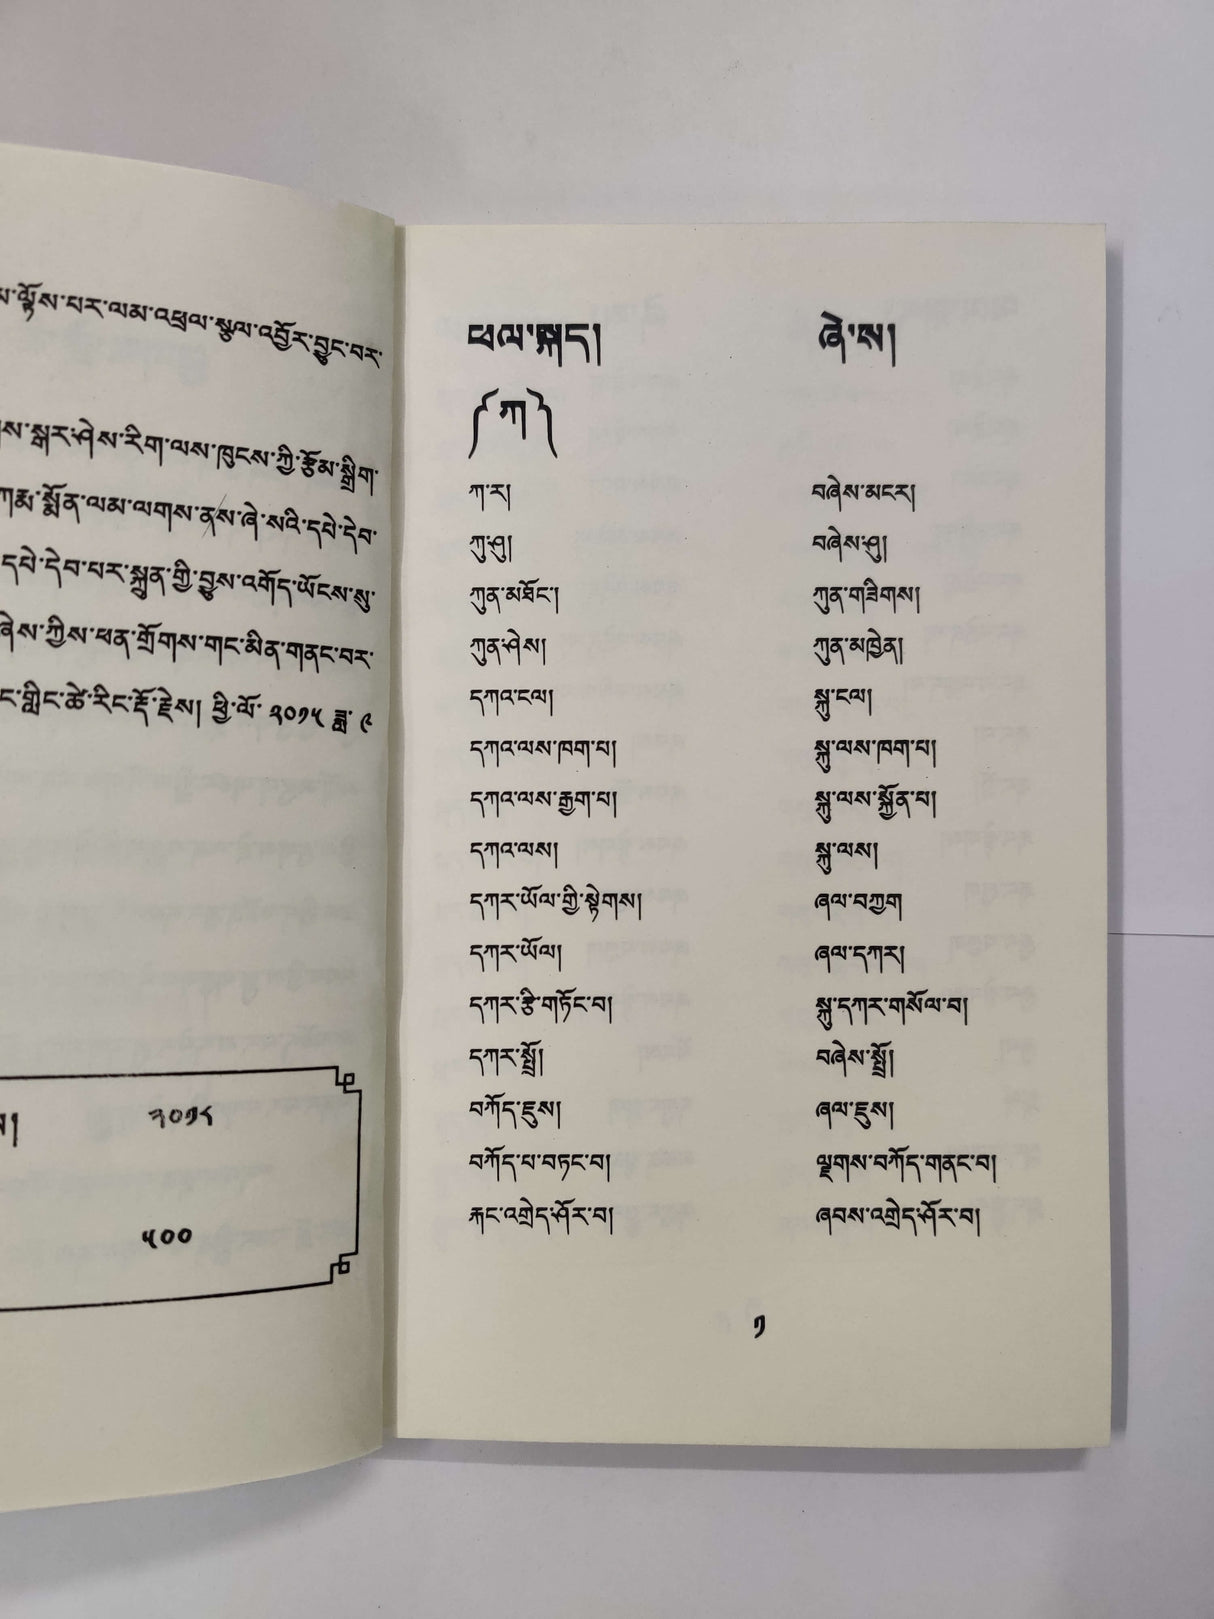 ལྟོས་པར་ལམ་འཕྲལ་སྩལ་འབྱོར་བྱུང་བར་
སྒར་ཤེས་རིག་ལས་ཁུངས་ཀྱི་རྩོམ་སྒྲིག་
ཀརྨ་སྨོན་ལམ་ལགས་ནས་ཞེ་སའི་དཔེ་དེབ་
དཔེ་དེབ་པར་སྐྲུན་གྱི་བྱུས་འགོད་ཡོངས་སུ་
ཞེས་ཀྱིས་ཕན་གྲོགས་གང་མིན་གནང་བར་
གླིང་ཚེ་རིང་རྡོ་རྗེས། ཕྱི་ལོ་ ༢༠༡༥ ཟླ་ ༩
༢༠༡༥
༥༠༠
ཕལ་སྐད། ཞེ་ས།
༼ཀ༽
ཀ་ར། བཞེས་མངར།
ཀུ་ཤུ། བཞེས་ཤུ།
ཀུན་མཐོང་། ཀུན་གཟིགས།
ཀུན་ཤེས། ཀུན་མཁྱེན།
དཀའ་ངལ། སྐུ་ངལ།
དཀའ་ལས་ཁག་པ། སྐུ་ལས་ཁག་པ།
དཀའ་ལས་རྒྱག་པ། སྐུ་ལས་སྐྱོན་པ།
དཀའ་ལས། སྐུ་ལས།
དཀར་ཡོལ་གྱི་སྟེགས། ཞལ་བཀྱག
དཀར་ཡོལ། ཞལ་དཀར།
དཀར་རྩི་གཏོང་བ། སྐུ་དཀར་གསོལ་བ།
དཀར་སྤྲོ། བཞེས་སྤྲོ།
བཀོད་ཇུས། ཞལ་ཇུས།
བཀོད་པ་བཏང་བ། ལྗགས་བཀོད་གནང་བ།
རྐང་འགྲེད་ཤོར་བ། ཞབས་འགྲེད་ཤོར་བ།
༡